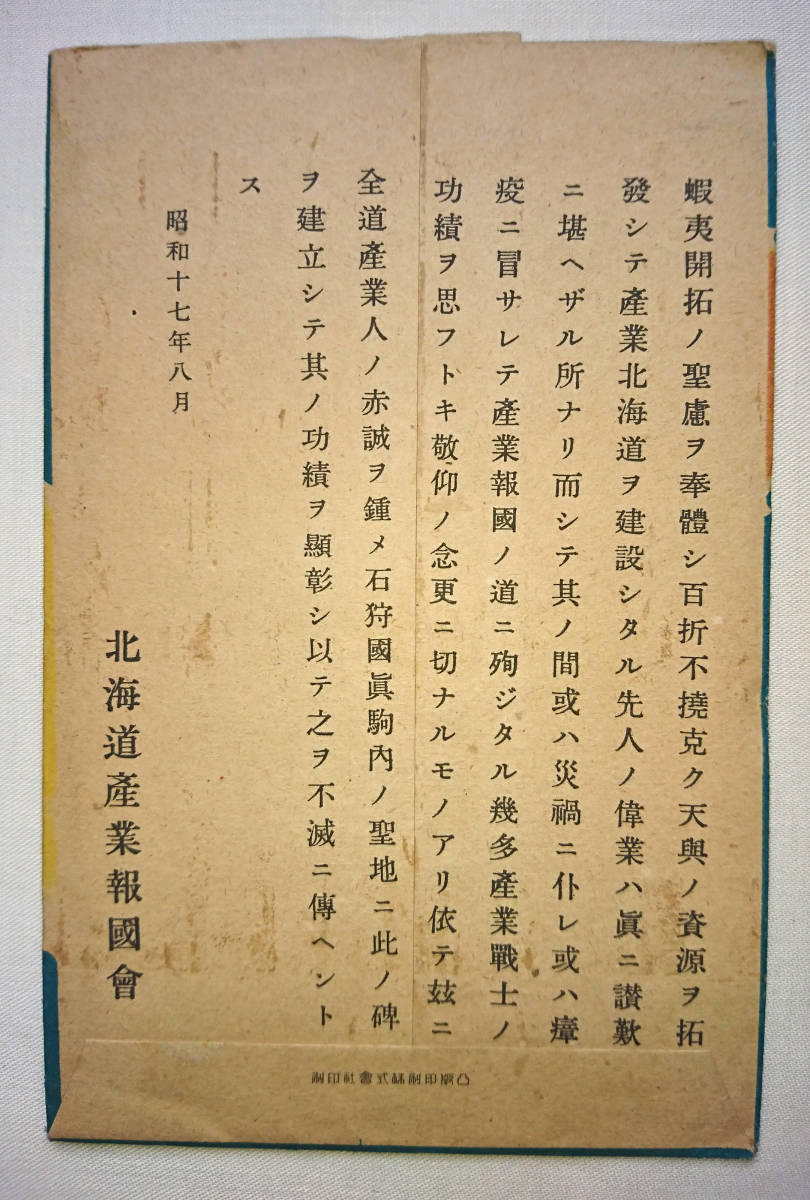 蝦夷開拓ノ聖慮ヲ奉體シ百折不撓克ク天與ノ資源ヲ拓
發シテ產業北海道ヲ建設シタル先人ノ偉業ハ眞ニ讃歎
ニ堪ヘザル所ナリ而シテ其ノ間或ハ災禍ニ仆レ或ハ瘴
疫ニ冒サレテ產業報國ノ道ニ殉ジタル幾多產業戰士ノ
功績ヲ思フトキ敬仰ノ念更ニ切ナルモノアリ依テ玆ニ
全道產業人ノ赤誠ヲ鍾メ石狩國眞駒內ノ聖地ニ此ノ碑
ヲ建立シテ其ノ功績ヲ顯彰シ以テ之ヲ不滅ニ傳ヘント
ス
昭和十七年八月
北海道產業報國會
凸版印刷株式會社印刷